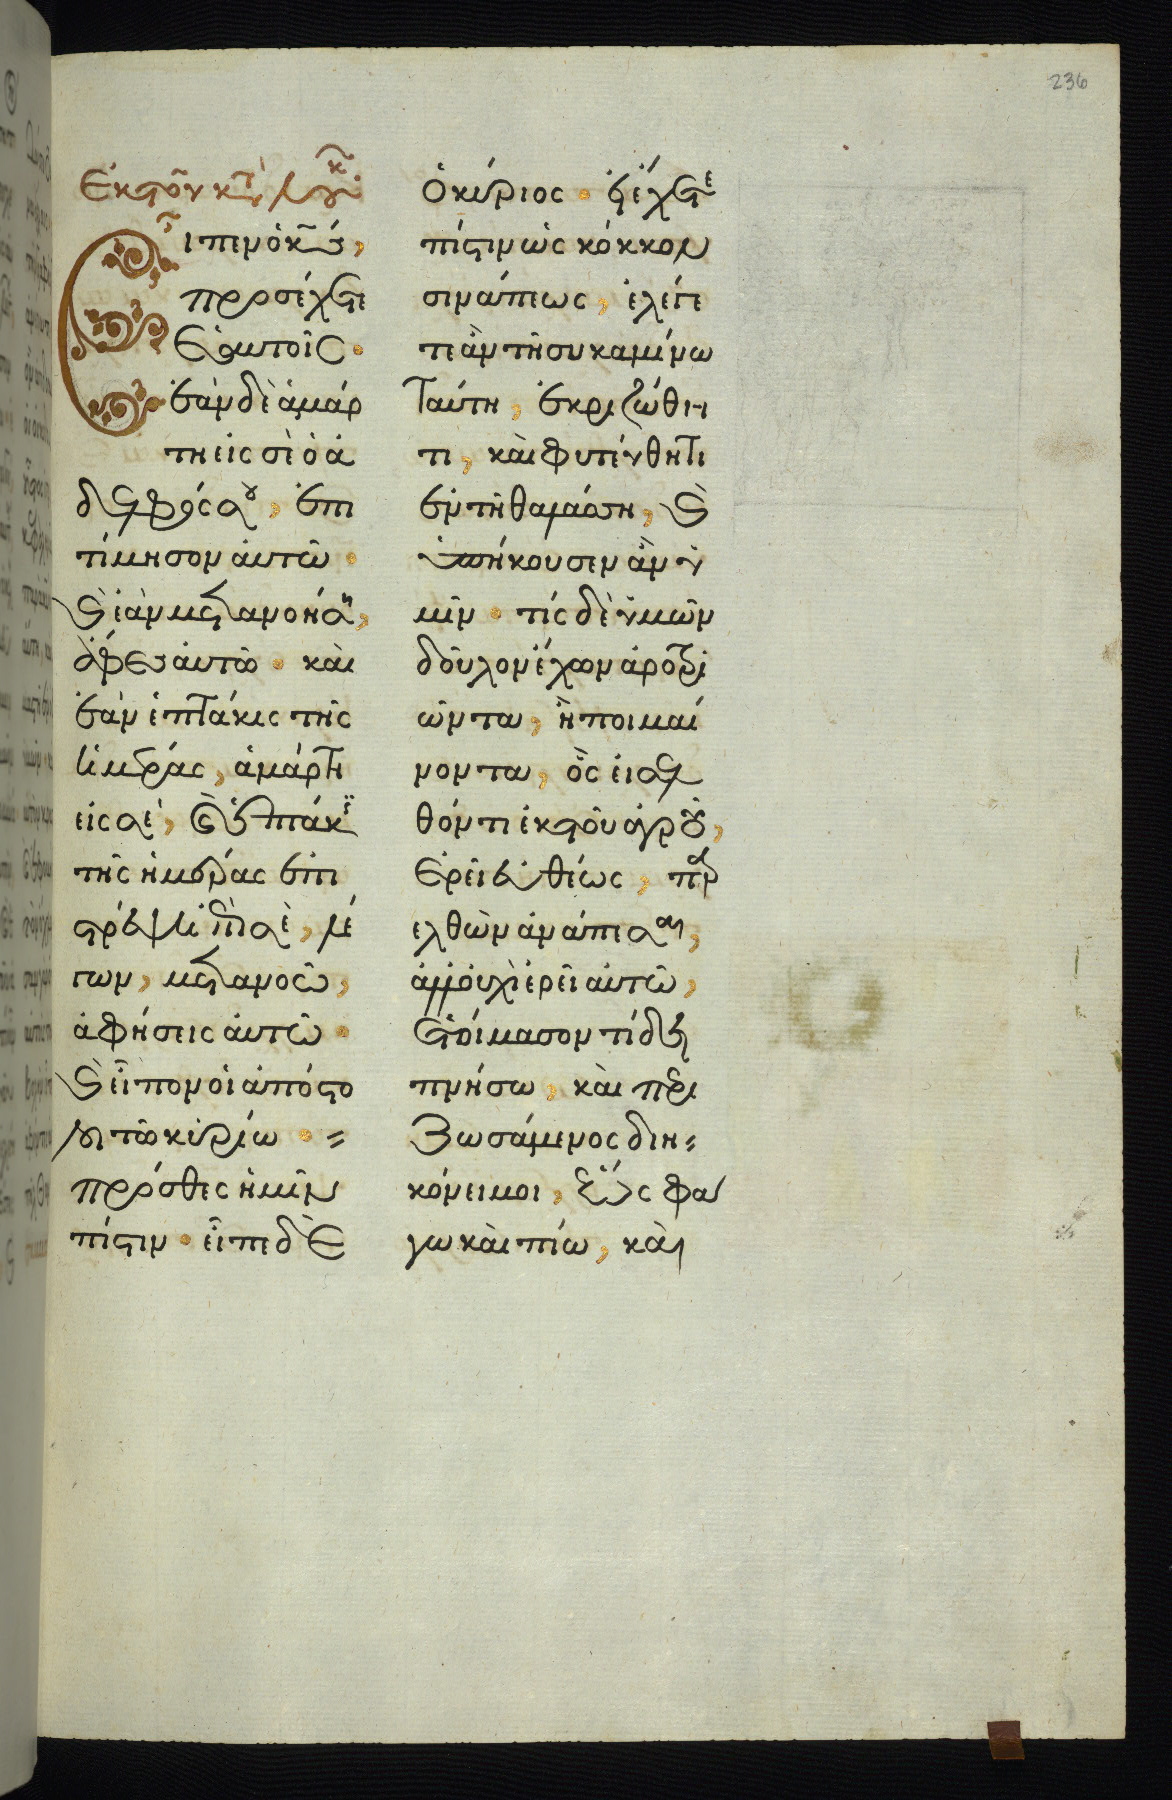 236
Ἐκ τοῦ κατὰ Λουκᾶν
Εἶπεν ὁ κ͞ς,
προσέχετε
ἑαυτοῖς·
ἐὰν δὲ ἁμάρ
τη εἰς σὲ ὁ ἀ
δελφός σου, ἐπι
τίμησον αὐτῶ·
καὶ ἐὰν μετανοήση,
ἄφες αὐτῶ· καὶ
ἐὰν ἑπτάκις τῆς
ἡμέρας, ἁμάρτη
εἰς σὲ, καὶ ἑπτάκις
τῆς ἡμέρας ἐπι
στρέψη ἐπὶ σὲ, λέ
γων, μετανοῶ,
ἀφήσεις αὐτῶ·
καὶ εἶπον οἱ ἀπόστο
λοι τῶ κυρίω·
πρόσθες ἡμῖν
πίστιν· εἶπε δὲ
ὁ κύριος· εἰ ἔχετε
πίστιν ὡς κόκκον
σινάπεως, ἐλέγε
τε ἂν τῆ συκαμίνω
ταύτη, ἐκριζώθη
τι, καὶ φυτεύθητι
ἐν τῆ θαλάσση, καὶ
ὑπήκουσεν ἂν ὑ
μῖν· τίς δὲ ὑμῶν
δοῦλον ἔχων ἀροτρι
ῶντα, ἢ ποιμαί
νοντα, ὃς εἰσελ
θόντι ἐκ τοῦ ἀγροῦ,
ἐρεῖ εὐθέως, παρ
ελθὼν ἀνάπεσαι,
ἀλλ' οὐχὶ ἐρεῖ αὐτῶ,
ἑτοίμασον τί δει
πνήσω, καὶ περι
ζωσάμενος διη
κόνει μοι, ἕως φά
γω καὶ πίω, καὶ